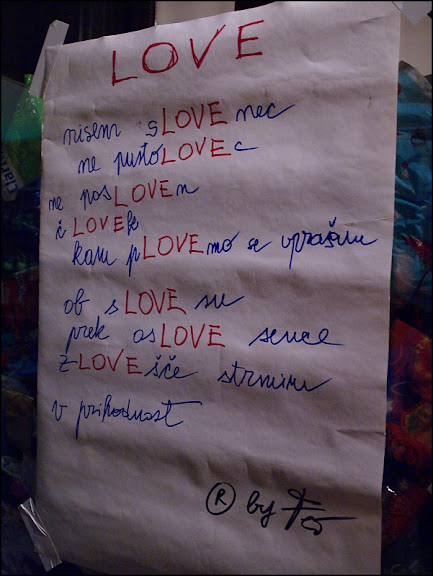 LOVE
nisem sLOVEnec
ne pustoLOVEc
ne posLOVEn
čLOVEk
kam pLOVEmo se vprašam
ob sLOVEsu
prek osLOVE sence
zLOVEšče strmim
v prihodnost
® by
Clari